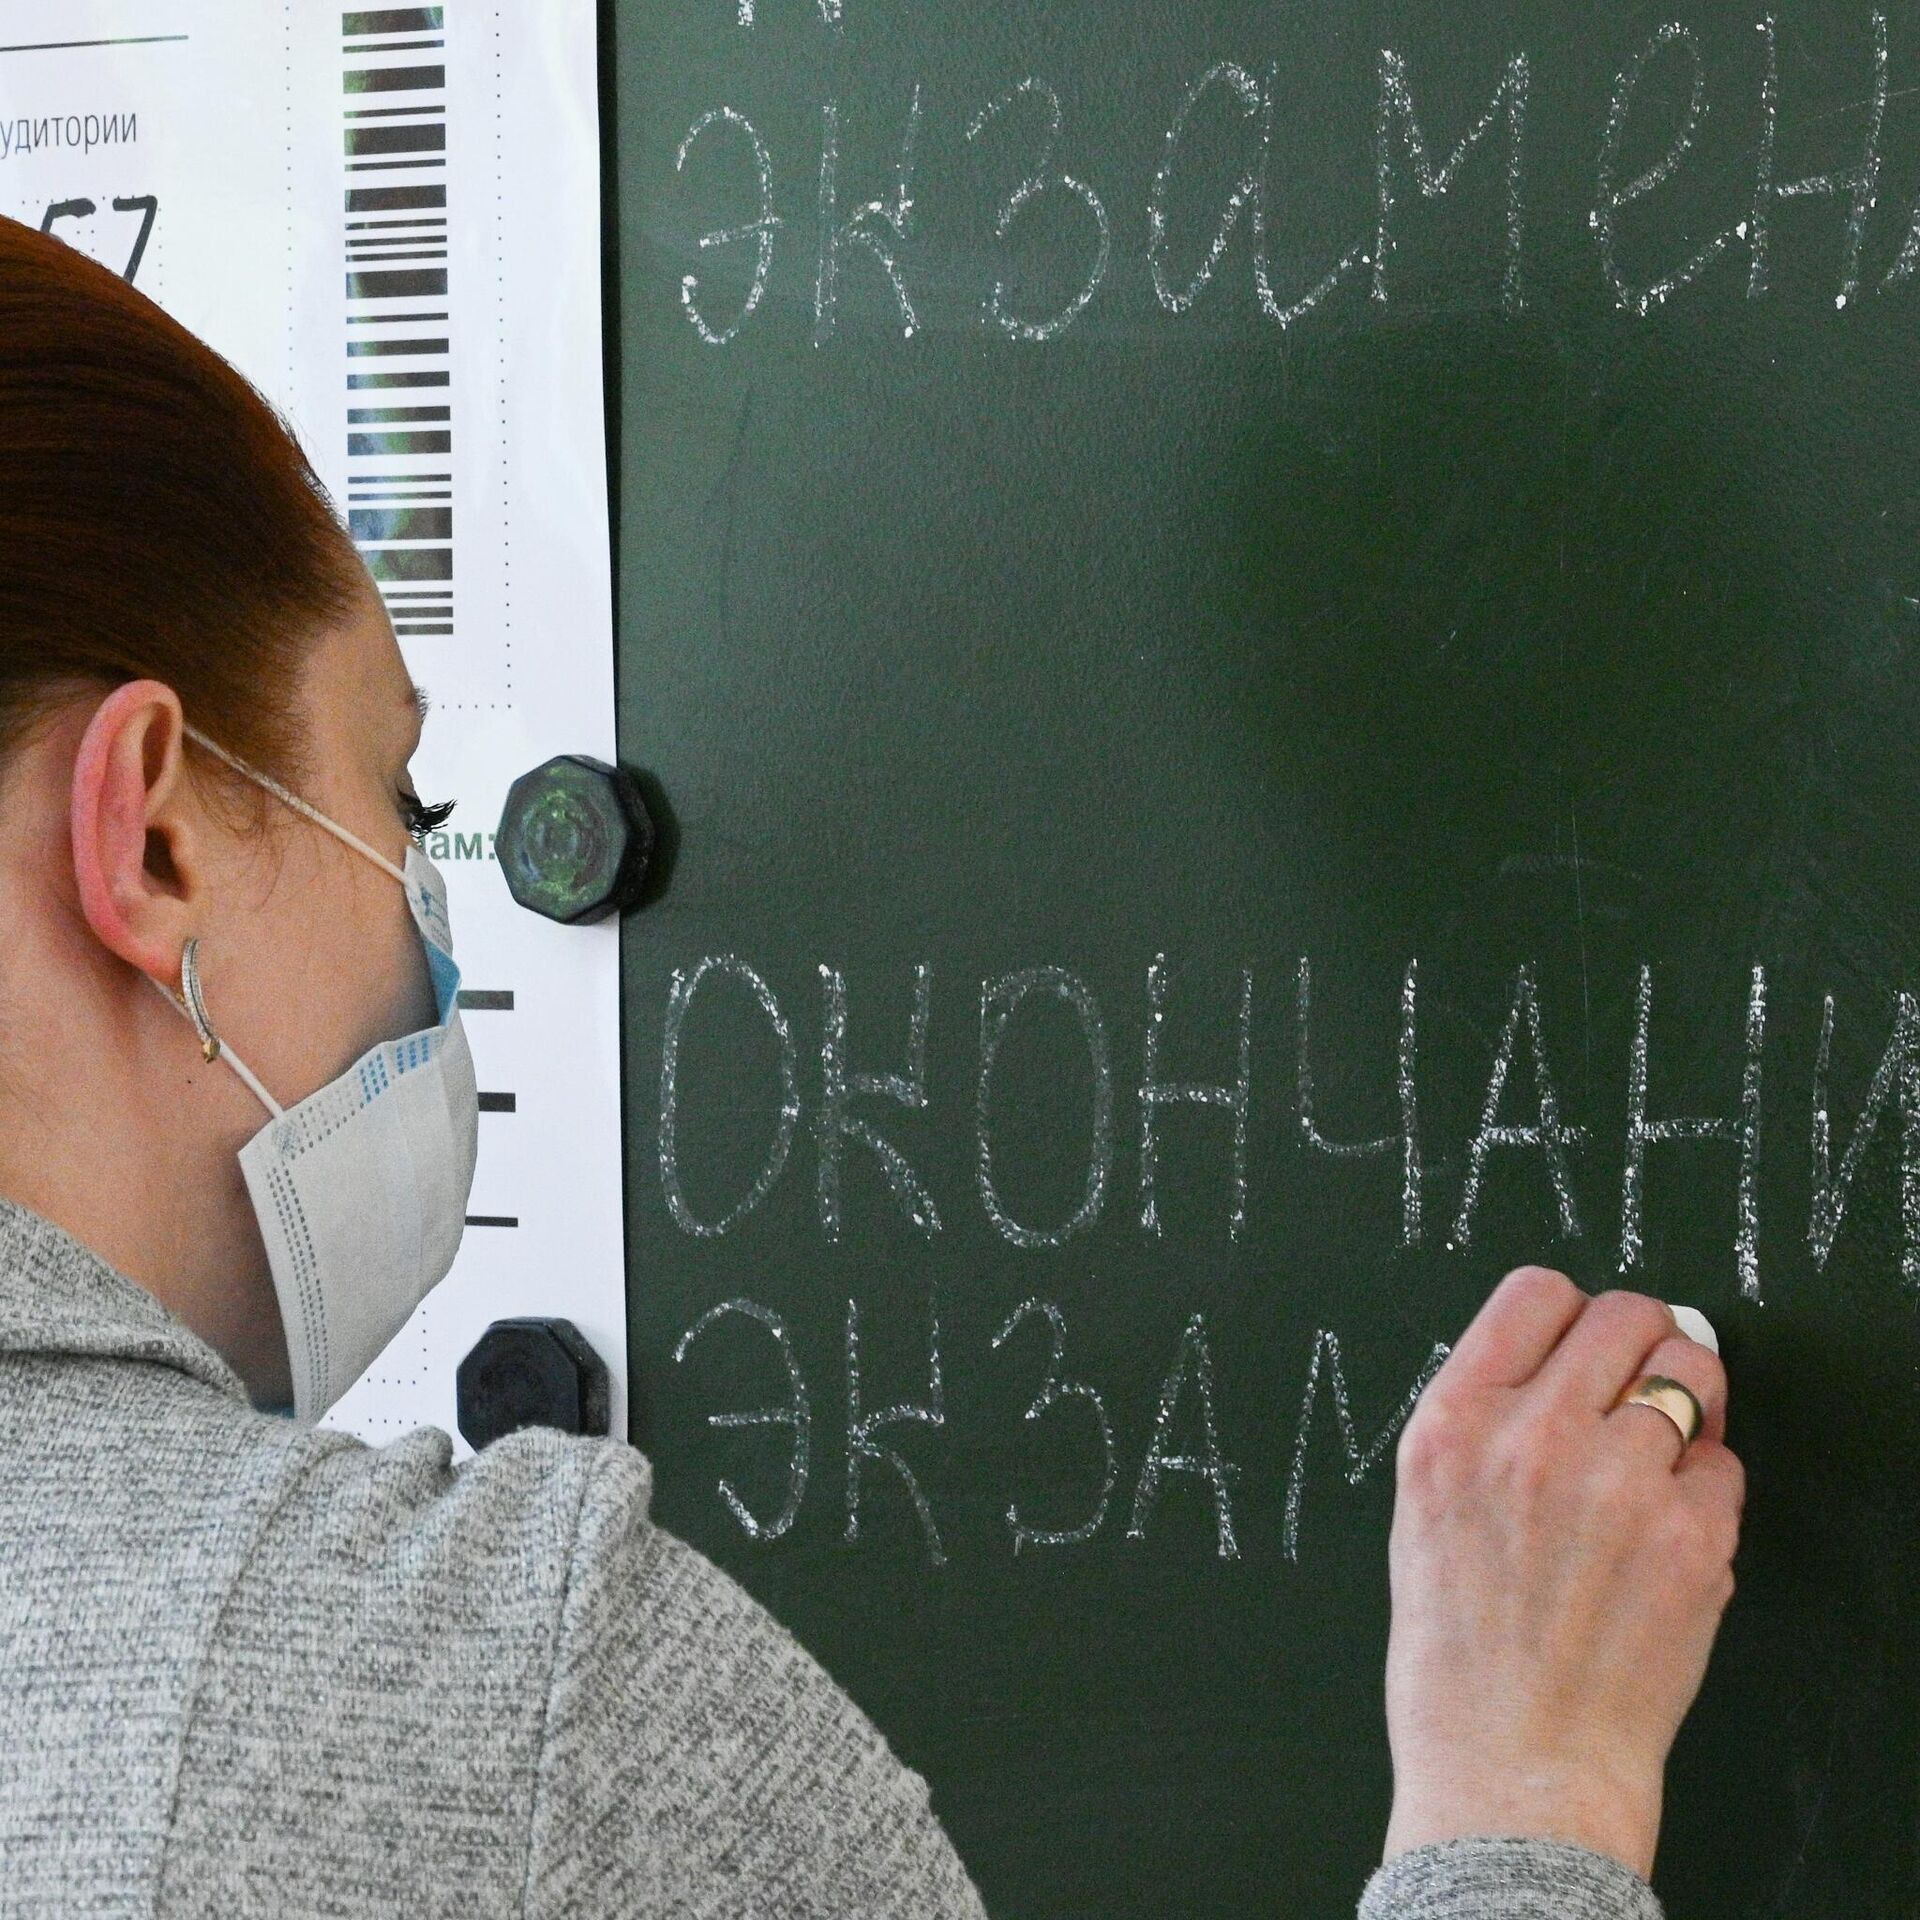 удитории
57
экзамен
нам:
ОКОНЧАНИ
ЭКЗАМ